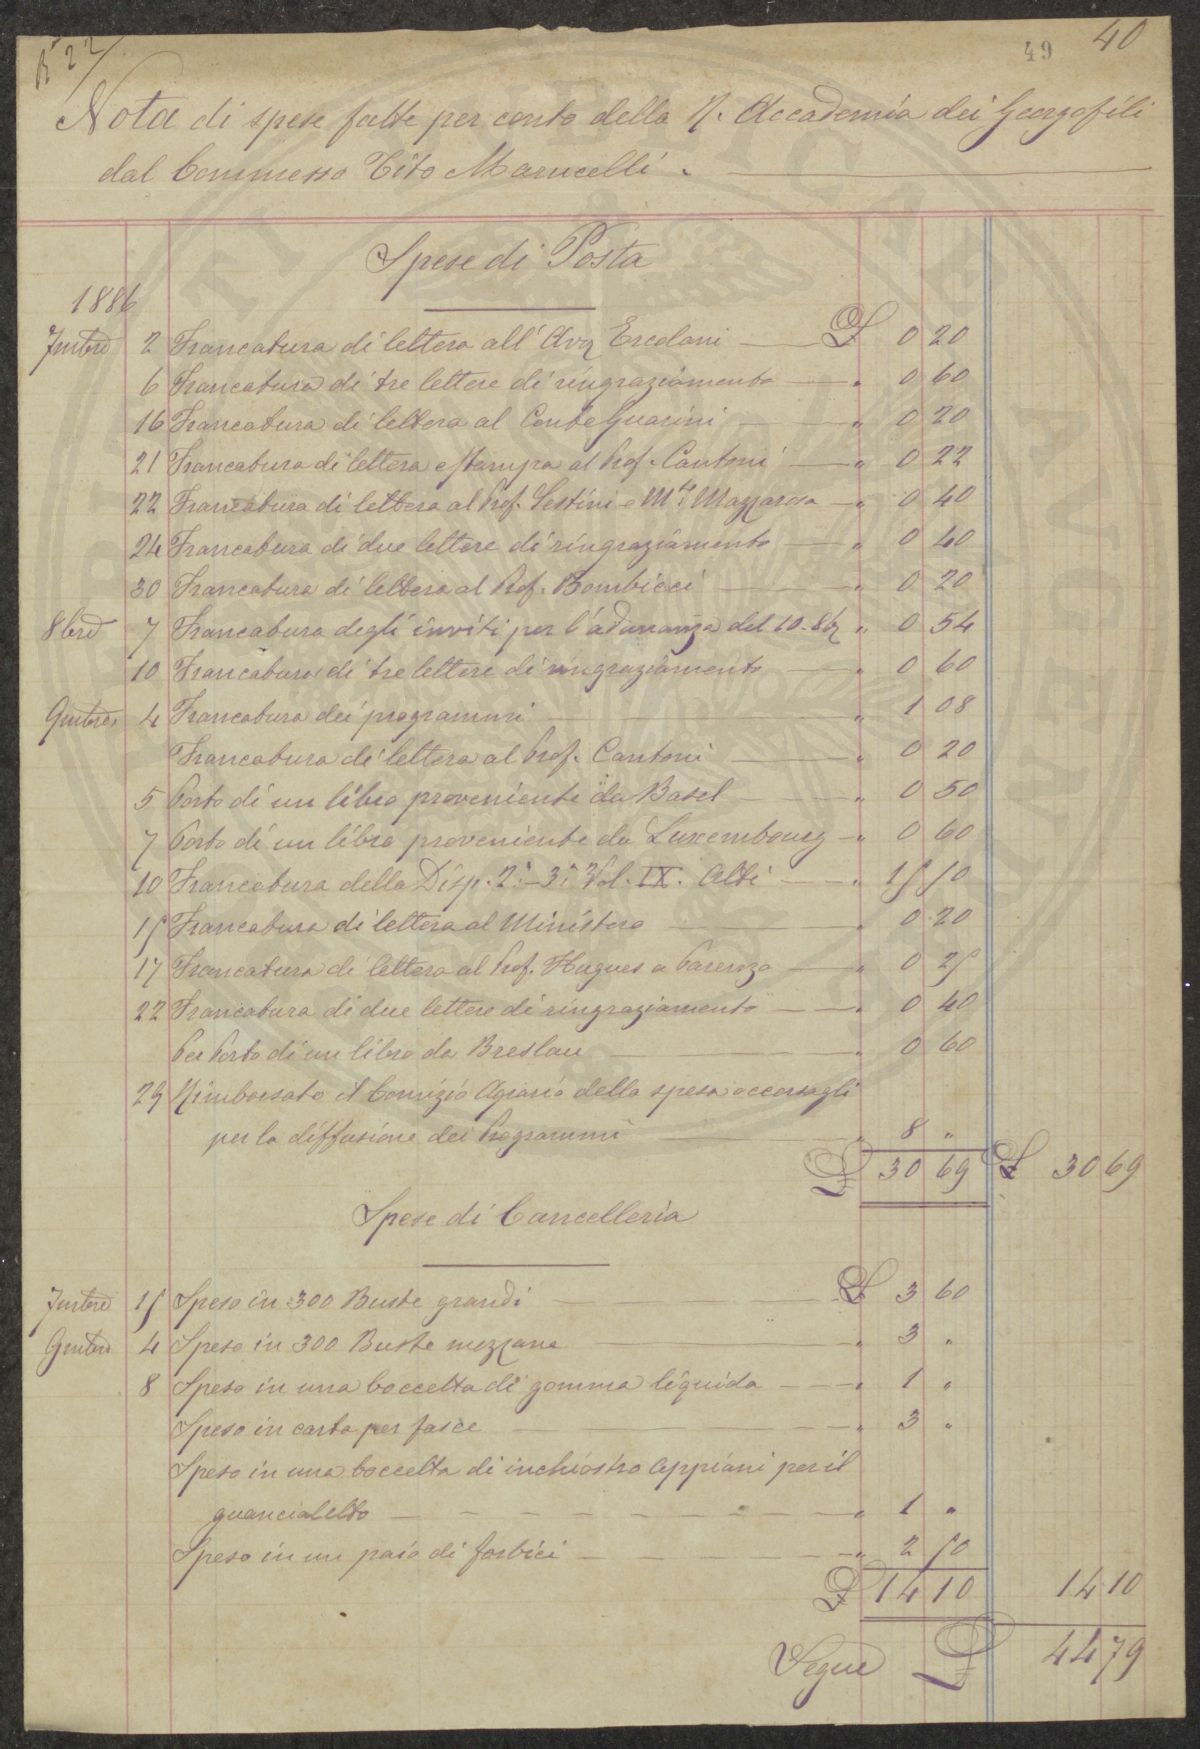 N° 22
49 40
Nota di spese fatte per conto della R. Accademia dei Georgofili
dal Commesso Tito Marucelli.
Spese di Posta
1886
7mbre 2 Francatura di lettera all'Avv Ercolani £ 0 20
6 Francatura di tre lettere di ringraziamento " 0 60
16 Francatura di lettera al Conte Guarini " 0 20
21 Francatura di lettera e stampa al Prof. Cantoni " 0 22
22 Francatura di lettera al Prof. Sestini e Mse Mazzarosa " 0 40
24 Francatura di due lettere di ringraziamento " 0 40
30 Francatura di lettera al Prof. Bombicci " 0 20
8bre 7 Francatura degli inviti per l'adunanza del 10. 8b " 0 54
10 Francatura di tre lettere di ringraziamento " 0 60
9mbre 4 Francatura dei programmi " 1 08
Francatura di lettera al Prof. Cantoni " 0 20
5 Porto di un libro proveniente da Basel " 0 50
7 Porto di un libro proveniente da Luxembourg " 0 60
10 Francatura della Disp. 2a-3a Vol. IX. Atti " 15 50
15 Francatura di lettera al Ministero " 0 20
17 Francatura di lettera al Prof. Hugues a Parenzo " 0 25
22 Francatura di due lettere di ringraziamento " 0 40
Per Porto di un libro da Breslau " 0 60
29 Rimborsato il Comizio Agrario della spesa occorsagli
per la diffusione dei Programmi " 8 "
£ 30 69 £ 30 69
Spese di Cancelleria
7mbre 15 Speso in 300 Buste grandi £ 3 60
9mbre 4 Speso in 300 Buste mezzane " 3 "
8 Speso in una boccetta di gomma liquida " 1 "
Speso in carta per fasce " 3 "
Speso in una boccetta di inchiostro Appiani per il
guancialetto " 1 "
Speso in un paio di forbici " 2 50
£ 14 10 14 10
Segue £ 44 79